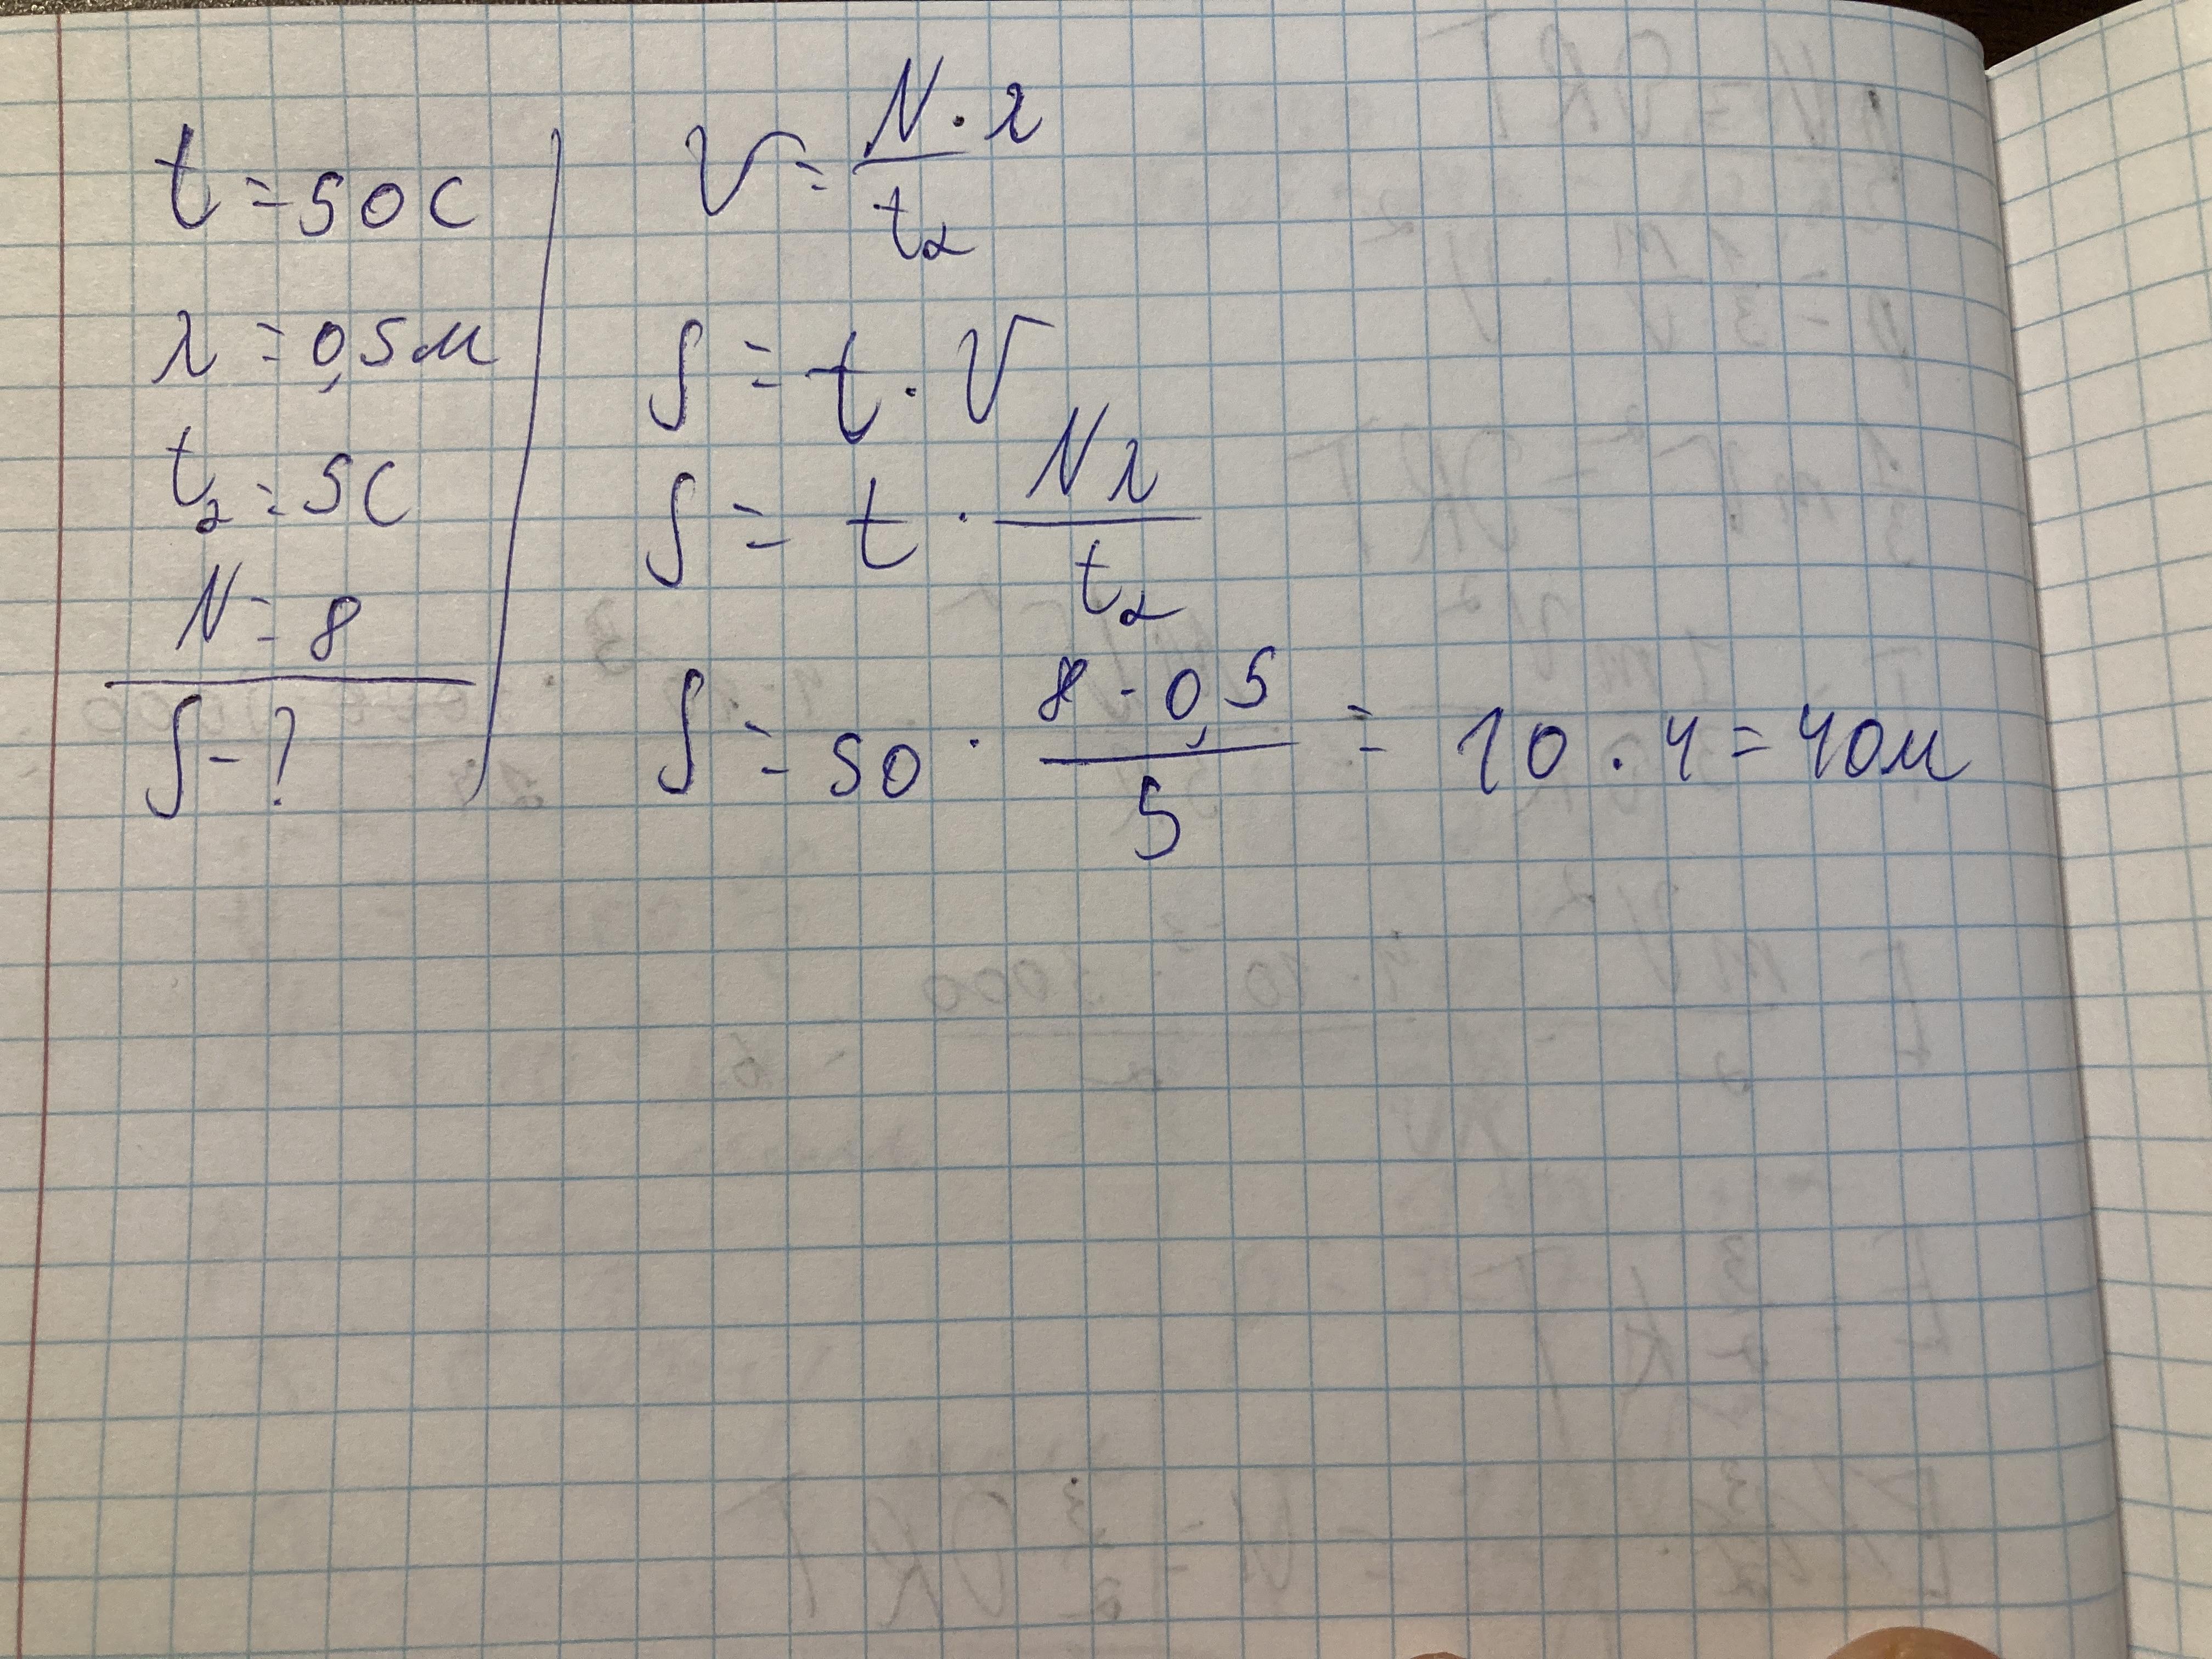 t = 50 с
λ = 0,5 м
t₂ = 5 с
N = 8
S - ?
V = N · λ / t₂
S = t · V
S = t · Nλ / t₂
S = 50 · 8 · 0,5 / 5 = 10 · 4 = 40 м